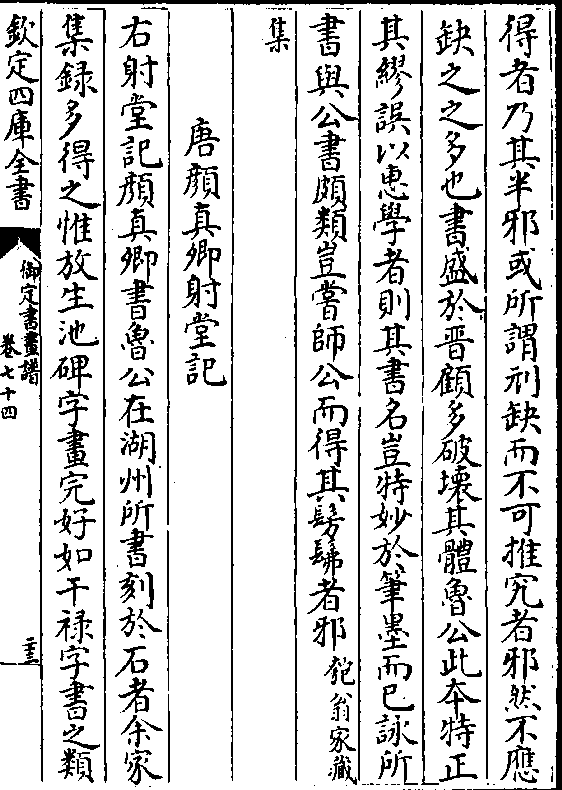 得者乃其半邪或所謂刓缺而不可推究者邪然不應
缺之之多也書盛於晋顧多破壞其體魯公此本特正
其繆誤以惠學者則其書名豈特妙於筆墨而已詠所
書與公書頗類豈嘗師公而得其髣髴者邪匏翁家藏
集
唐顔真卿射堂記
右射堂記顔真卿書魯公在湖州所書刻於石者余家
集録多得之惟放生池碑字畫完好如干禄字書之類
欽定四庫全書
御定書畫譜
卷七十四
二三